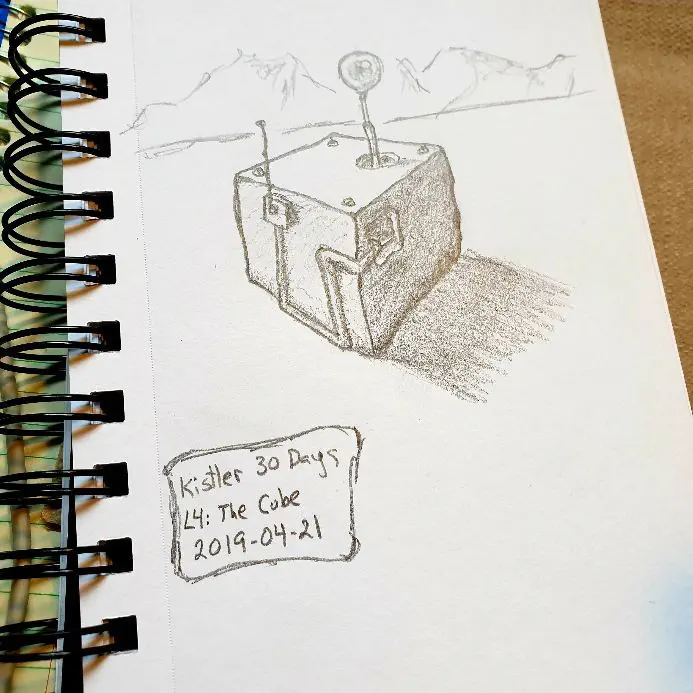 Kistler 30 Days
L4: The Cube
2019-04-21